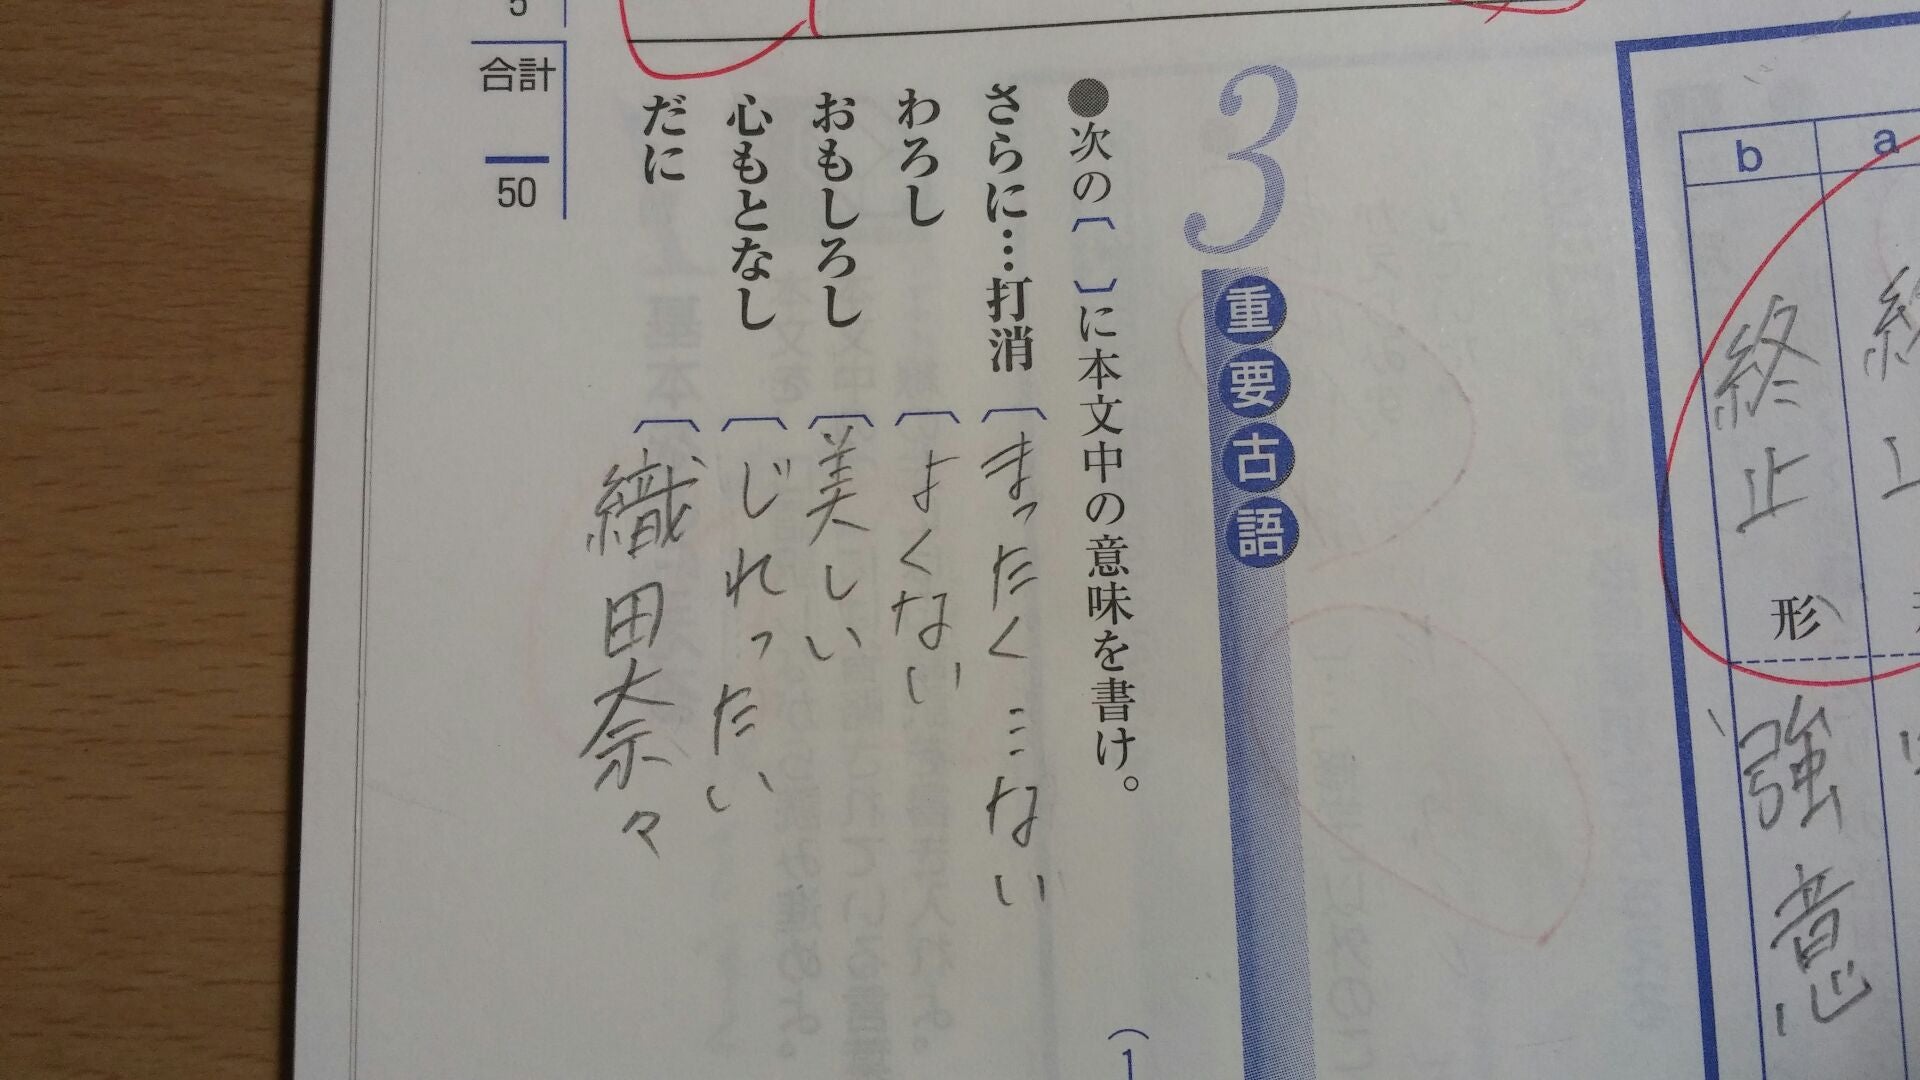 a
b
終止
形
強意
3 重要古語
●次の〔 〕に本文中の意味を書け。
(1
さらに…打消〔まったく…ない
わろし〔よくない
おもしろし〔美しい
心もとなし〔じれったい
だに〔織田奈々
5
合計
50